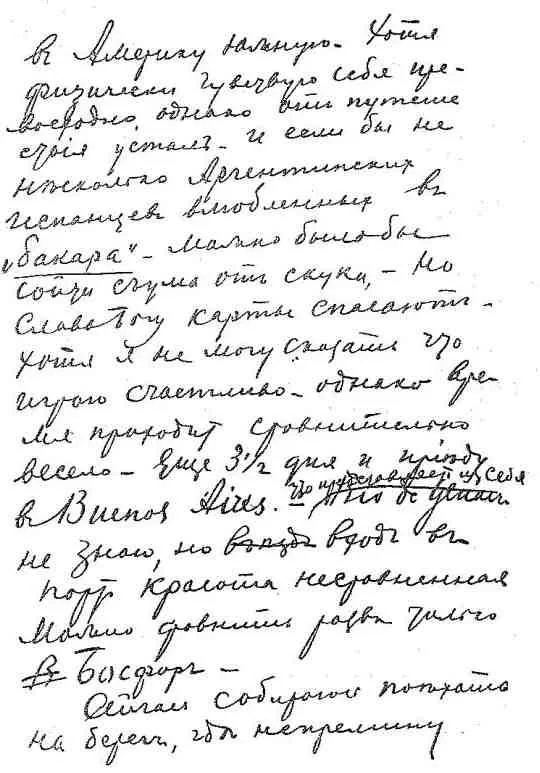 въ Америку Южную. Хотя
физически чувствую себя пре-
восходно, однако отъ путеше
ствія усталъ. И если бы не
нѣсколько Аргентинскихъ
испанцевъ влюбленныхъ въ
„бакара" – можно было бы
сойти съ ума отъ скуки, – но
слава Богу карты спасаютъ –
хотя я не могу сказать что
играю счастливо – однако вре-
мя проходитъ сравнительно
весело – Еще 3 1/2 дня и пріѣду
въ Buenos Aires. – что представляетъ изъ себя
не знаю, но въѣздъ входъ въ
портъ красота несравненная
Можно сравнить развѣ только
въ Босфоръ –
Сейчасъ собираюсь поѣхать
на берегъ, гдѣ непремину